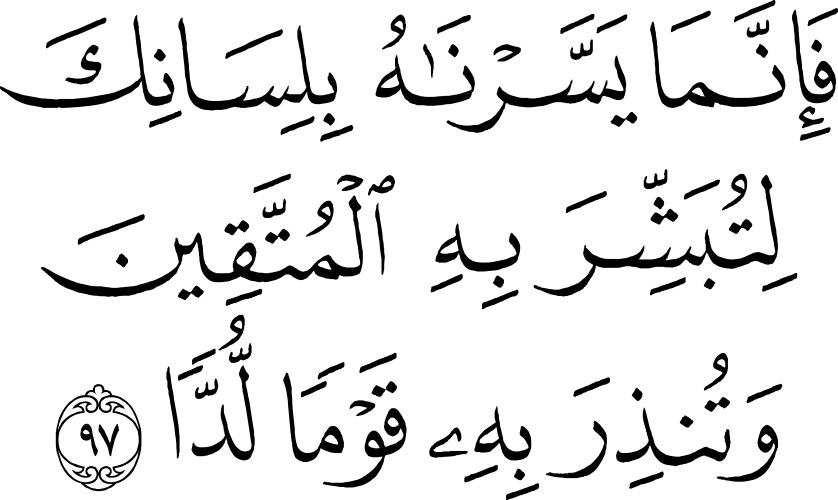 فَإِنَّمَا يَسَّرْنَٰهُ بِلِسَانِكَ
لِتُبَشِّرَ بِهِ ٱلْمُتَّقِينَ
وَتُنذِرَ بِهِۦ قَوْمًا لُّدًّا ٩٧